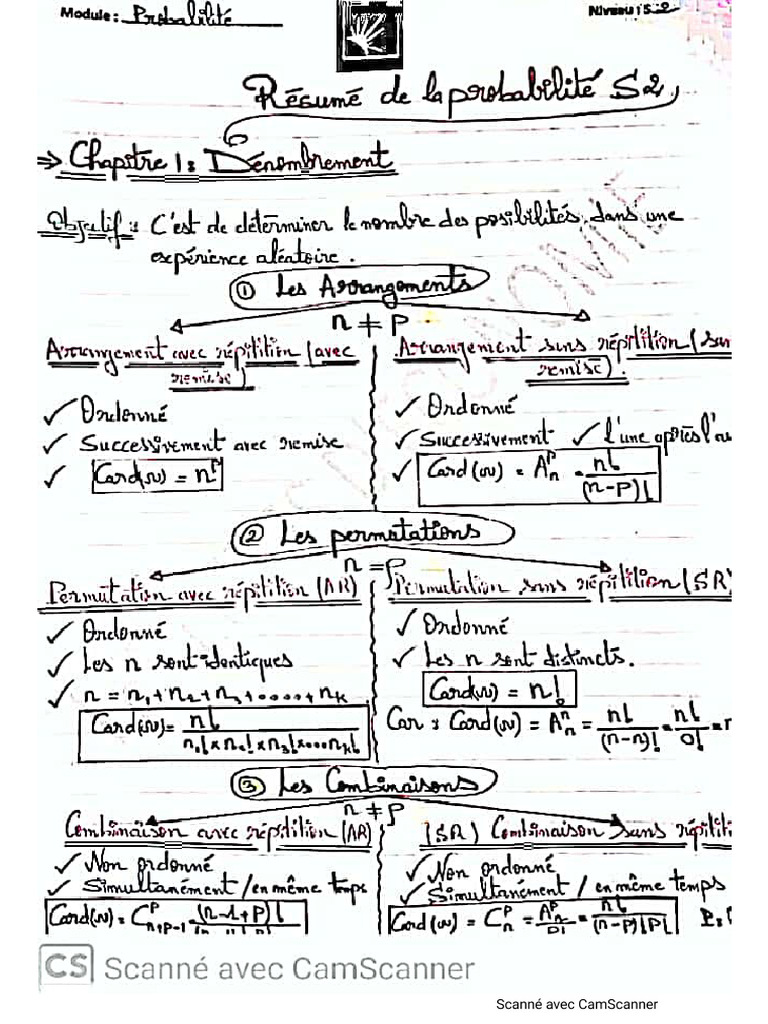 Module: Probabilité
Niveau: S2
Résumé de la probabilité S2,
⇒ Chapitre 1: Dénombrement
Objectif: C'est de déterminer le nombre des posibilités, dans une
expérience aléatoire.
① Les Arrangements
n ≠ p
Arrangement avec répitition (avec
remise)
✓ Ordonné
✓ Successivement avec remise
✓ Card(Ω) = n^p
Arrangement sans répitition (san
remise).
✓ Ordonné
✓ Successivement ✓ l'une après l'au
✓ Card(Ω) = A_n^p = n!/(n-p)!
② Les permutations
n = p
Permutation avec répitition (AR)
✓ Ordonné
✓ Les n sont identiques
✓ n = n₁+n₂+n₃+.....+n_k
Card(Ω) = n!/(n₁! × n₂! × n₃! ×....n_k!)
Permutation sans répitition (SR)
✓ Ordonné
✓ Les n sont distincts.
Card(Ω) = n!
Car : Card(Ω) = A_n^n = n!/(n-n)! = n!/0! =
③ Les Combinaisons
n ≠ p
Combinaison avec répitition (AR)
✓ Non ordonné
✓ Simultanément / en même temps
Card(Ω) = C_{n+p-1}^p (n-1+p)!
(SR) Combinaison sans répititi
✓ Non ordonné
✓ Simultanément / en même temps
Card(Ω) = C_n^p = A_n^p/p! = n!/(n-p)!p!
CS Scanné avec CamScanner
Scanné avec CamScanner